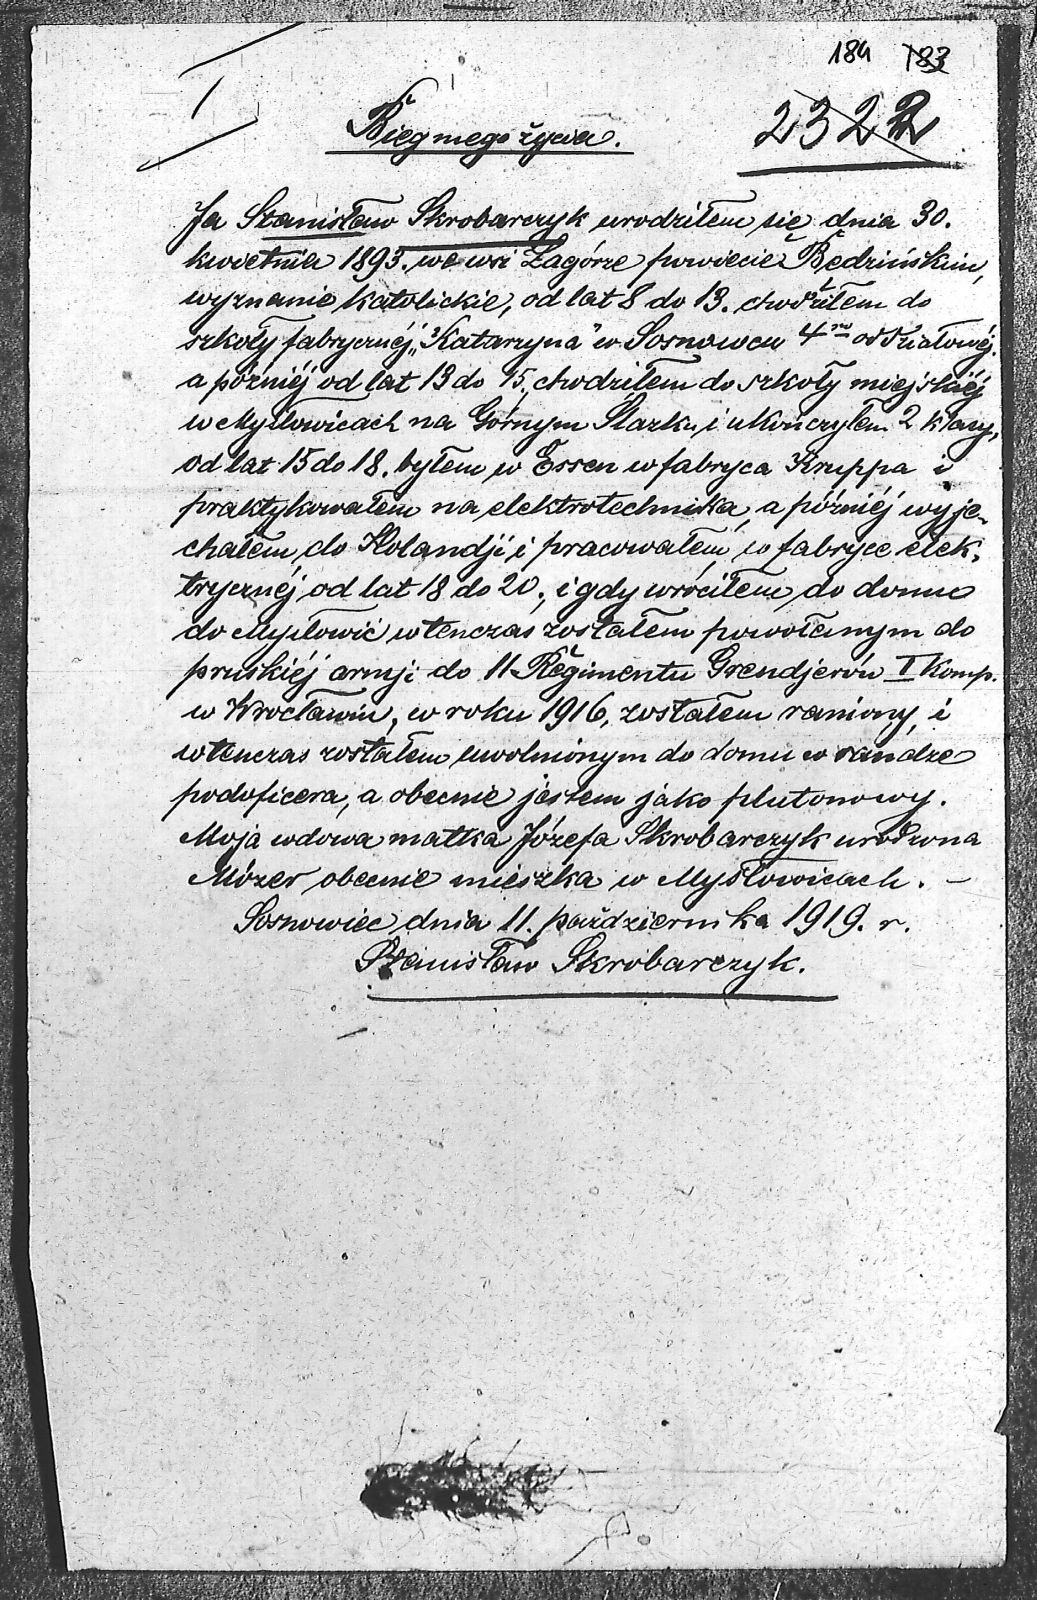 184 183
2322
Bieg mego życia.
Ja Stanisław Skrobarczyk urodziłem się dnia 30.
kwietnia 1893. we wsi Zagórze powiecie Będzińskim,
wyznanie katolickie, od lat 8 do 13. chodziłem do
szkoły fabrycznéj „Katarzyna" w Sosnowcu 4ro oddziałowéj.
a późniéj od lat 13 do 15. chodziłem do szkoły miejskiéj
w Mysłowicach na Górnym Slazku i ukończyłem 2 klasy,
od lat 15 do 18. byłem w Essen w fabryca Kruppa i
praktykowałem na elektrotechnika, a późniéj wyje-
chałem do Holandji i pracowałem w fabryce elek-
trycznéj od lat 18 do 20., i gdy wróciłem do domu
do Mysłowic wtenczas zostałem powołanym do
pruskiéj armji do 11 Regimentu Grendjerów I Komp.
w Wrocławiu, w roku 1916, zostałem raniony i
wtenczas zostałem uwolnionym do domu w randze
podoficera, a obecnie jestem jako plutonowy.
Moja wdowa matka Józefa Skrobarczyk urodzona
Mózer obecnie mieszka w Mysłowicach. –
Sosnowiec dnia 11. października 1919. r.
Stanisław Skrobarczyk.